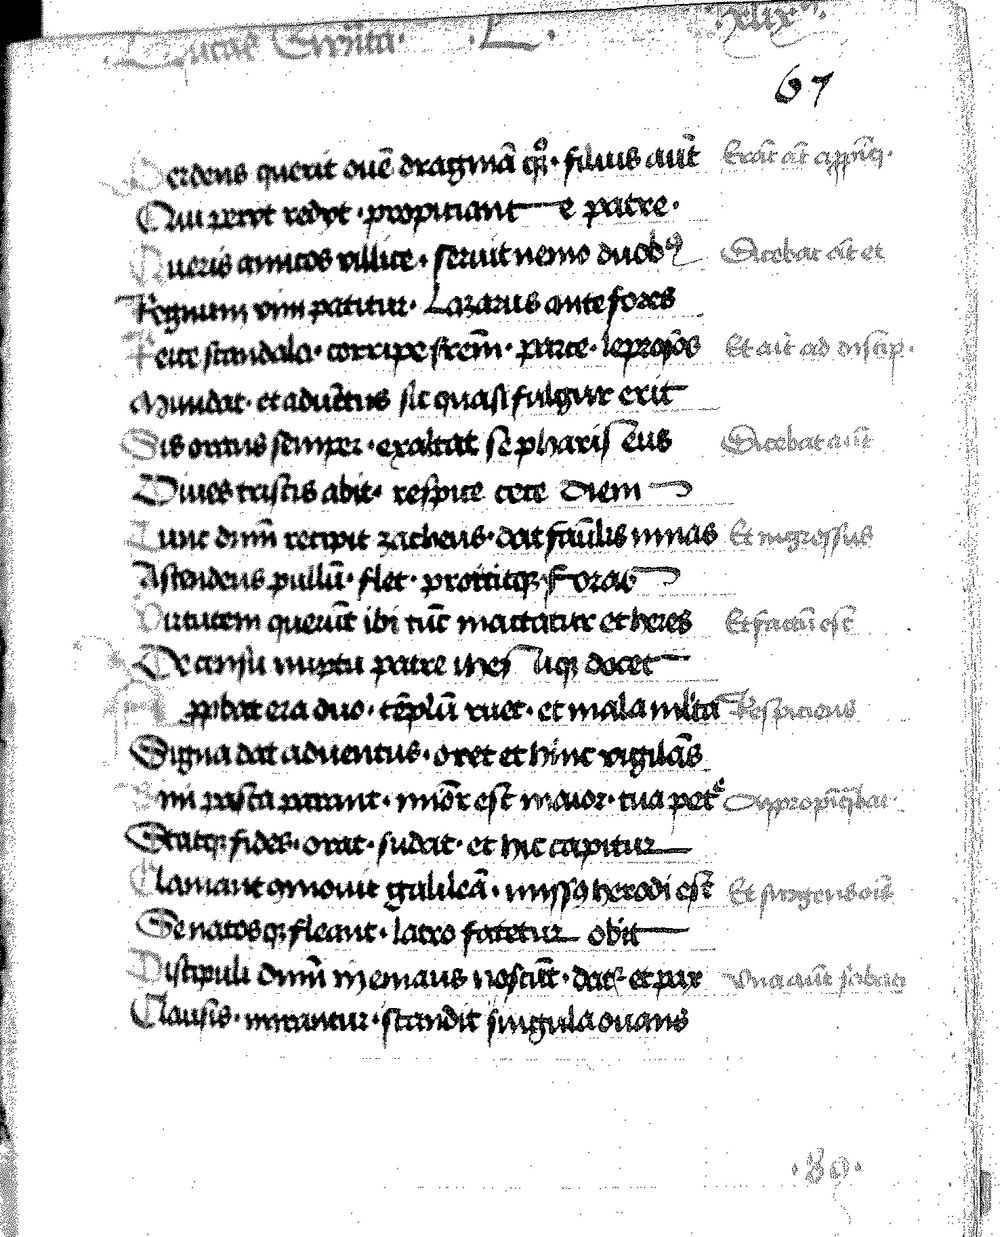 Lucas Evvita · L · xlix
67
Perdens querit ouē dragmā qͦꝫ · filius aūt Erāt āt appīq·
Qui peryt redyt · propiciant e patre ·
Queris amicos villice · seruit nemo duobꝯ Dicebat āt et
Regnum vim patitur · Lazarus ante fores
Ve scandala · corripe frēm · parce · leprosos Et ait ad discip·
Mundat · et aduētus sic quasi fulgur erit
Sis orans semper · exaltat se pharis eus Dicebat aūt
Diues tristis abit · respue cece diem
Tunc dnm̄ recipit zacheus · dat faūlis mnas Et ingressus
Ascendens pullū · flet · proiicitqꝫ foras
Virtutem querūt ibi tūc mactatur et heres Et factū est
De censu nuptu patre ihes uqꝫ docet
era duo · tēplū ruet · et mala mlta Respiciens
Signa dat aduentus · oret et hinc vigilās
pasca parant · miōr est maior · tua petͤ Appropīqbat
Statqꝫ fides · orat · sudat · et hic capitur
Clamant galileā · misso herodi est Et surgens oīs
Se natosqꝫ fleant · latro fatetur obit
Discipuli dnm̄ in emaus noscūt · dat et pax Vna aūt sabati
Clausis · mirantur · scandit singula ouans
· 80 ·